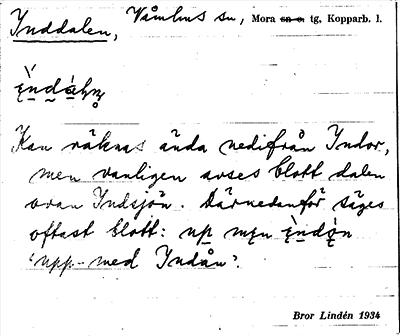 Inddalen, Våmhus sn, Mora sn o. tg, Kopparb. l.
Kan räknas ända nedifrån Indor,
men vanligen avses blott dalen
ovan Indsjön. Därnedanför säges
oftast blott:
'upp med Indån'.
Bror Lindén 1934